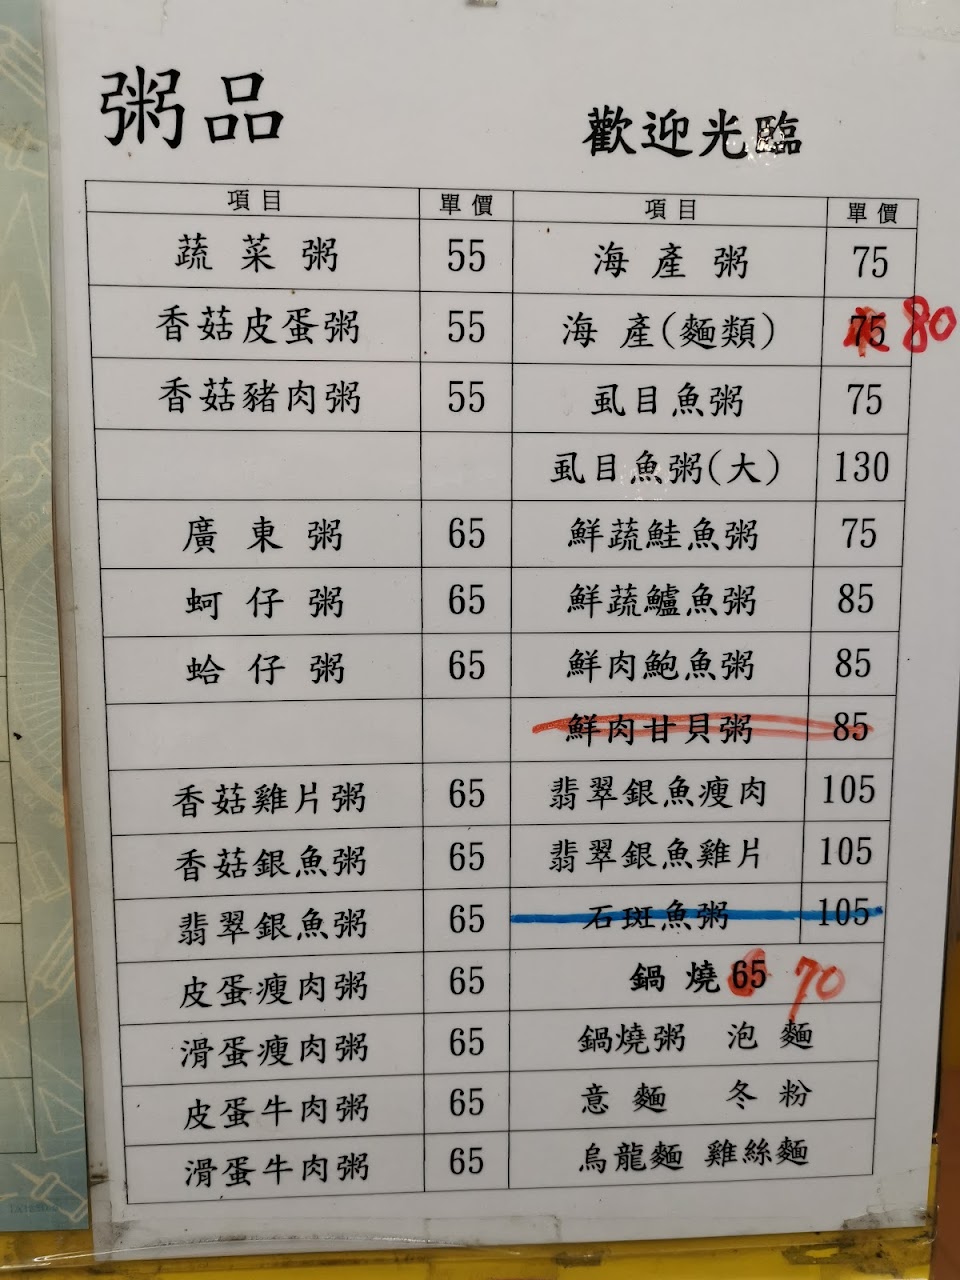 粥品
歡迎光臨
項目 單價 項目 單價
蔬菜粥 55 海產粥 75
香菇皮蛋粥 55 海產(麵類) 75 80
香菇豬肉粥 55 虱目魚粥 75
虱目魚粥(大) 130
廣東粥 65 鮮蔬鮭魚粥 75
蚵仔粥 65 鮮蔬鱸魚粥 85
蛤仔粥 65 鮮肉鮑魚粥 85
鮮肉甘貝粥 85
香菇雞片粥 65 翡翠銀魚瘦肉 105
香菇銀魚粥 65 翡翠銀魚雞片 105
翡翠銀魚粥 65 石斑魚粥 105
皮蛋瘦肉粥 65 鍋燒 65 70
滑蛋瘦肉粥 65 鍋燒粥 泡麵
皮蛋牛肉粥 65 意麵 冬粉
滑蛋牛肉粥 65 烏龍麵 雞絲麵